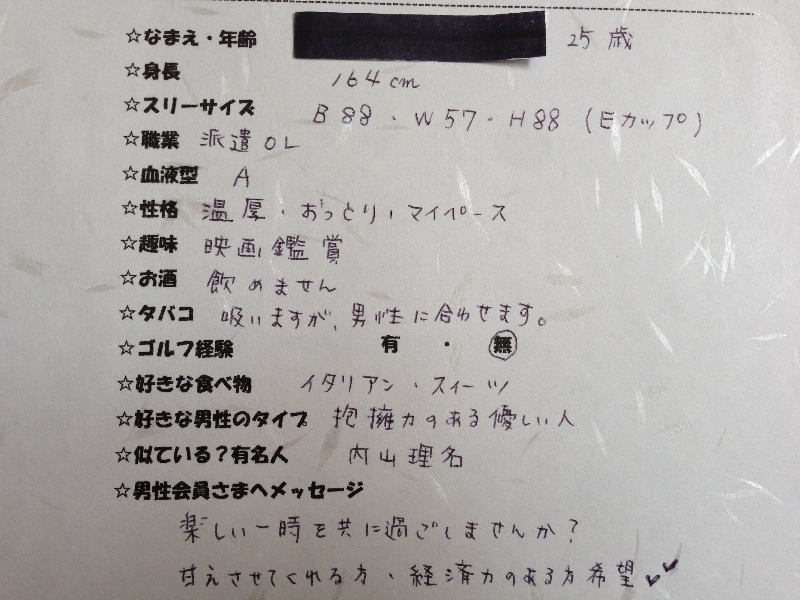 ☆なまえ・年齢 25歳
☆身長 164cm
☆スリーサイズ B88・W57・H88 (Eカップ)
☆職業 派遣OL
☆血液型 A
☆性格 温厚・おっとり・マイペース
☆趣味 映画鑑賞
☆お酒 飲めません
☆タバコ 吸いますが、男性に合わせます。
☆ゴルフ経験 有・無
☆好きな食べ物 イタリアン・スイーツ
☆好きな男性のタイプ 抱擁力のある優しい人
☆似ている?有名人 内山理名
☆男性会員さまへメッセージ
楽しい一時を共に過ごしませんか?
甘えさせてくれる方・経済力のある方希望✓✓